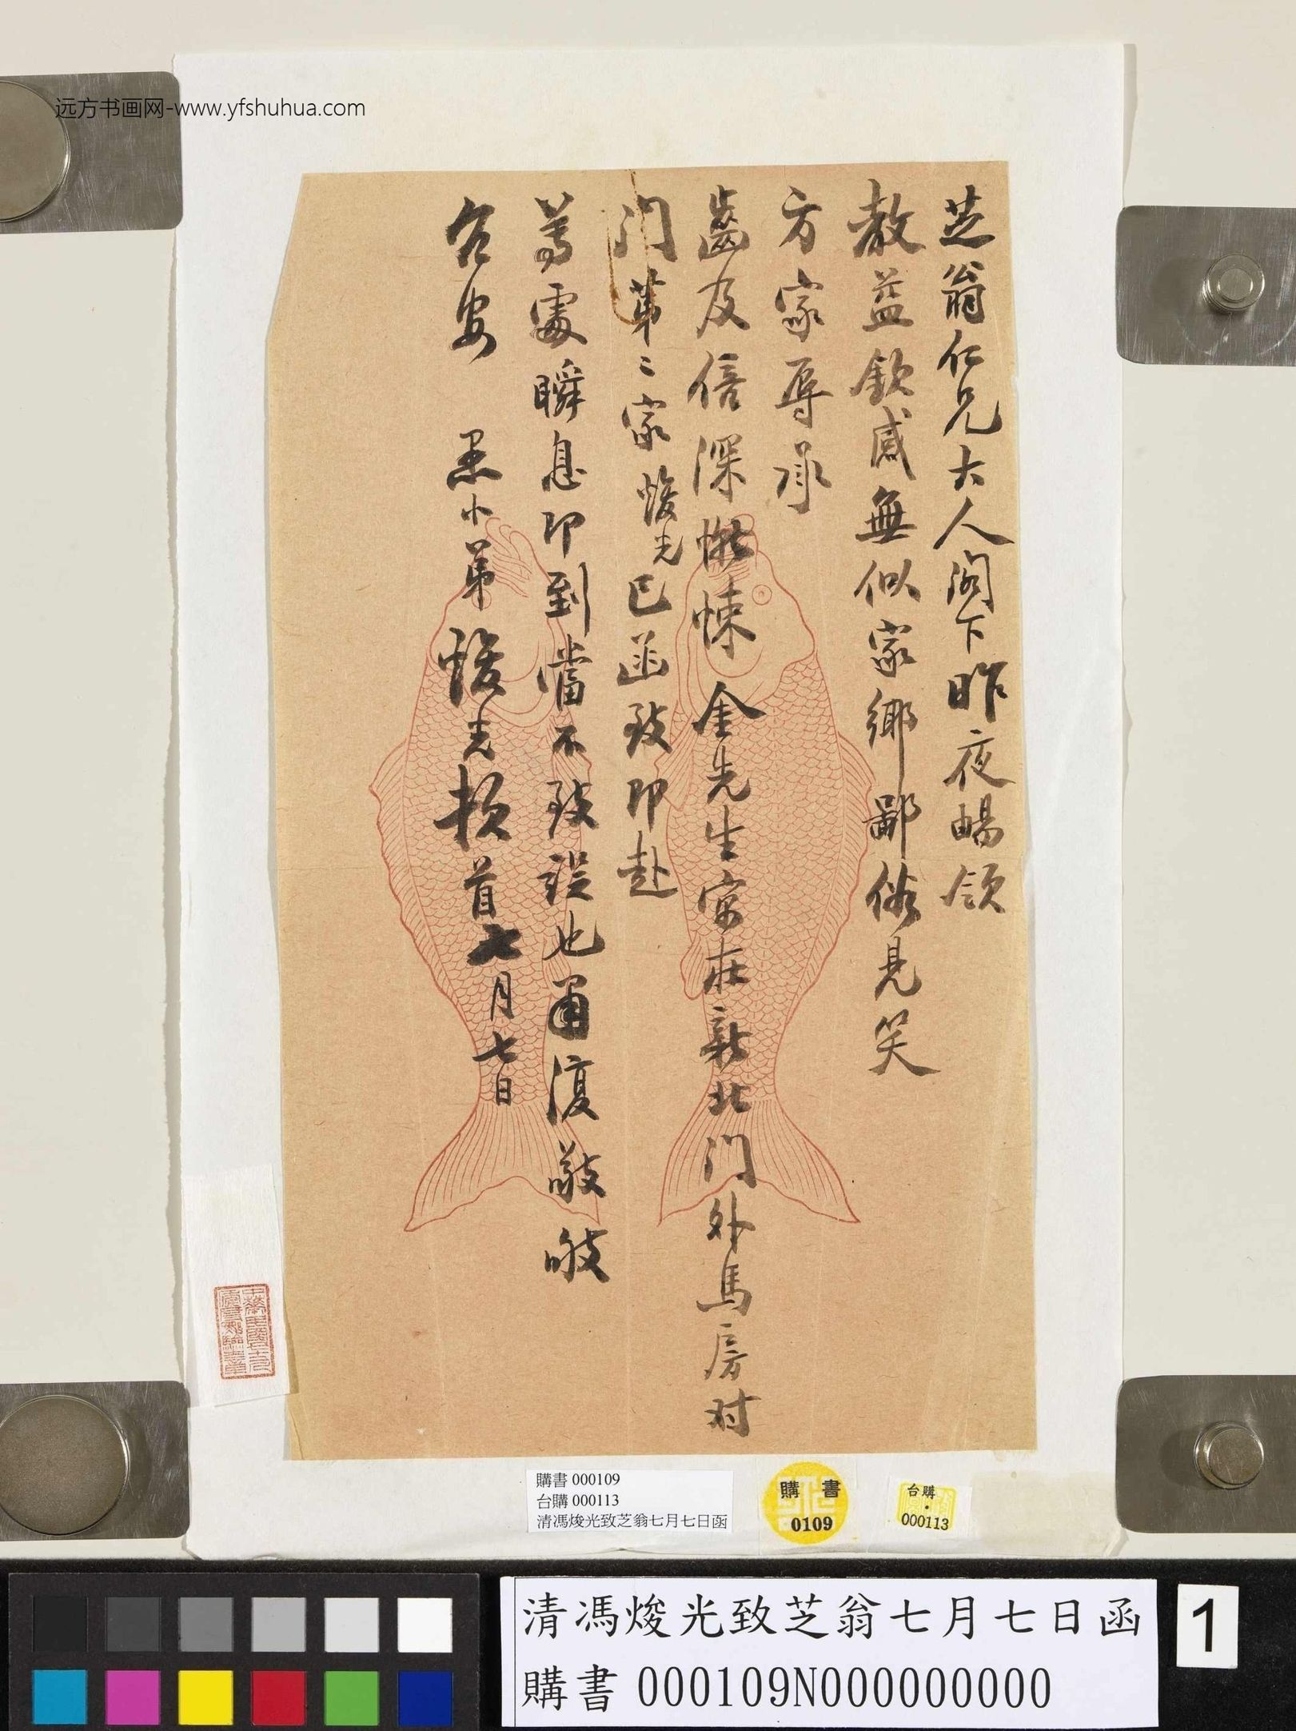 远方书画网-www.yfshuhua.com
芝翁仁兄大人阁下昨夜畅领
教益钦感無似家鄉鄙俗見笑
方家辱承
齒及倍深慚悚 金先生寓在新北門外馬房对
门第二家焌光已函致即赴
尊處瞬息即到當不致誤也甫復敬
台安 愚小弟焌光頓首七月七日
購書 000109
台購 000113
清馮焌光致芝翁七月七日函
購書
0109
台購
000113
清馮焌光致芝翁七月七日函
購書 000109N000000000
1